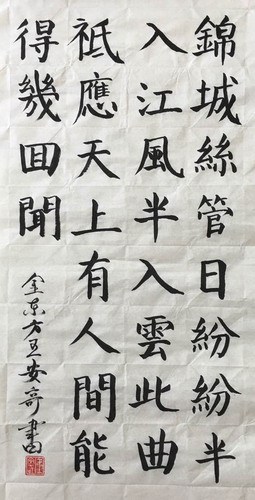 錦城絲管日紛紛半
入江風半入雲此曲
祗應天上有人間能
得幾回聞
金東方王安奇書